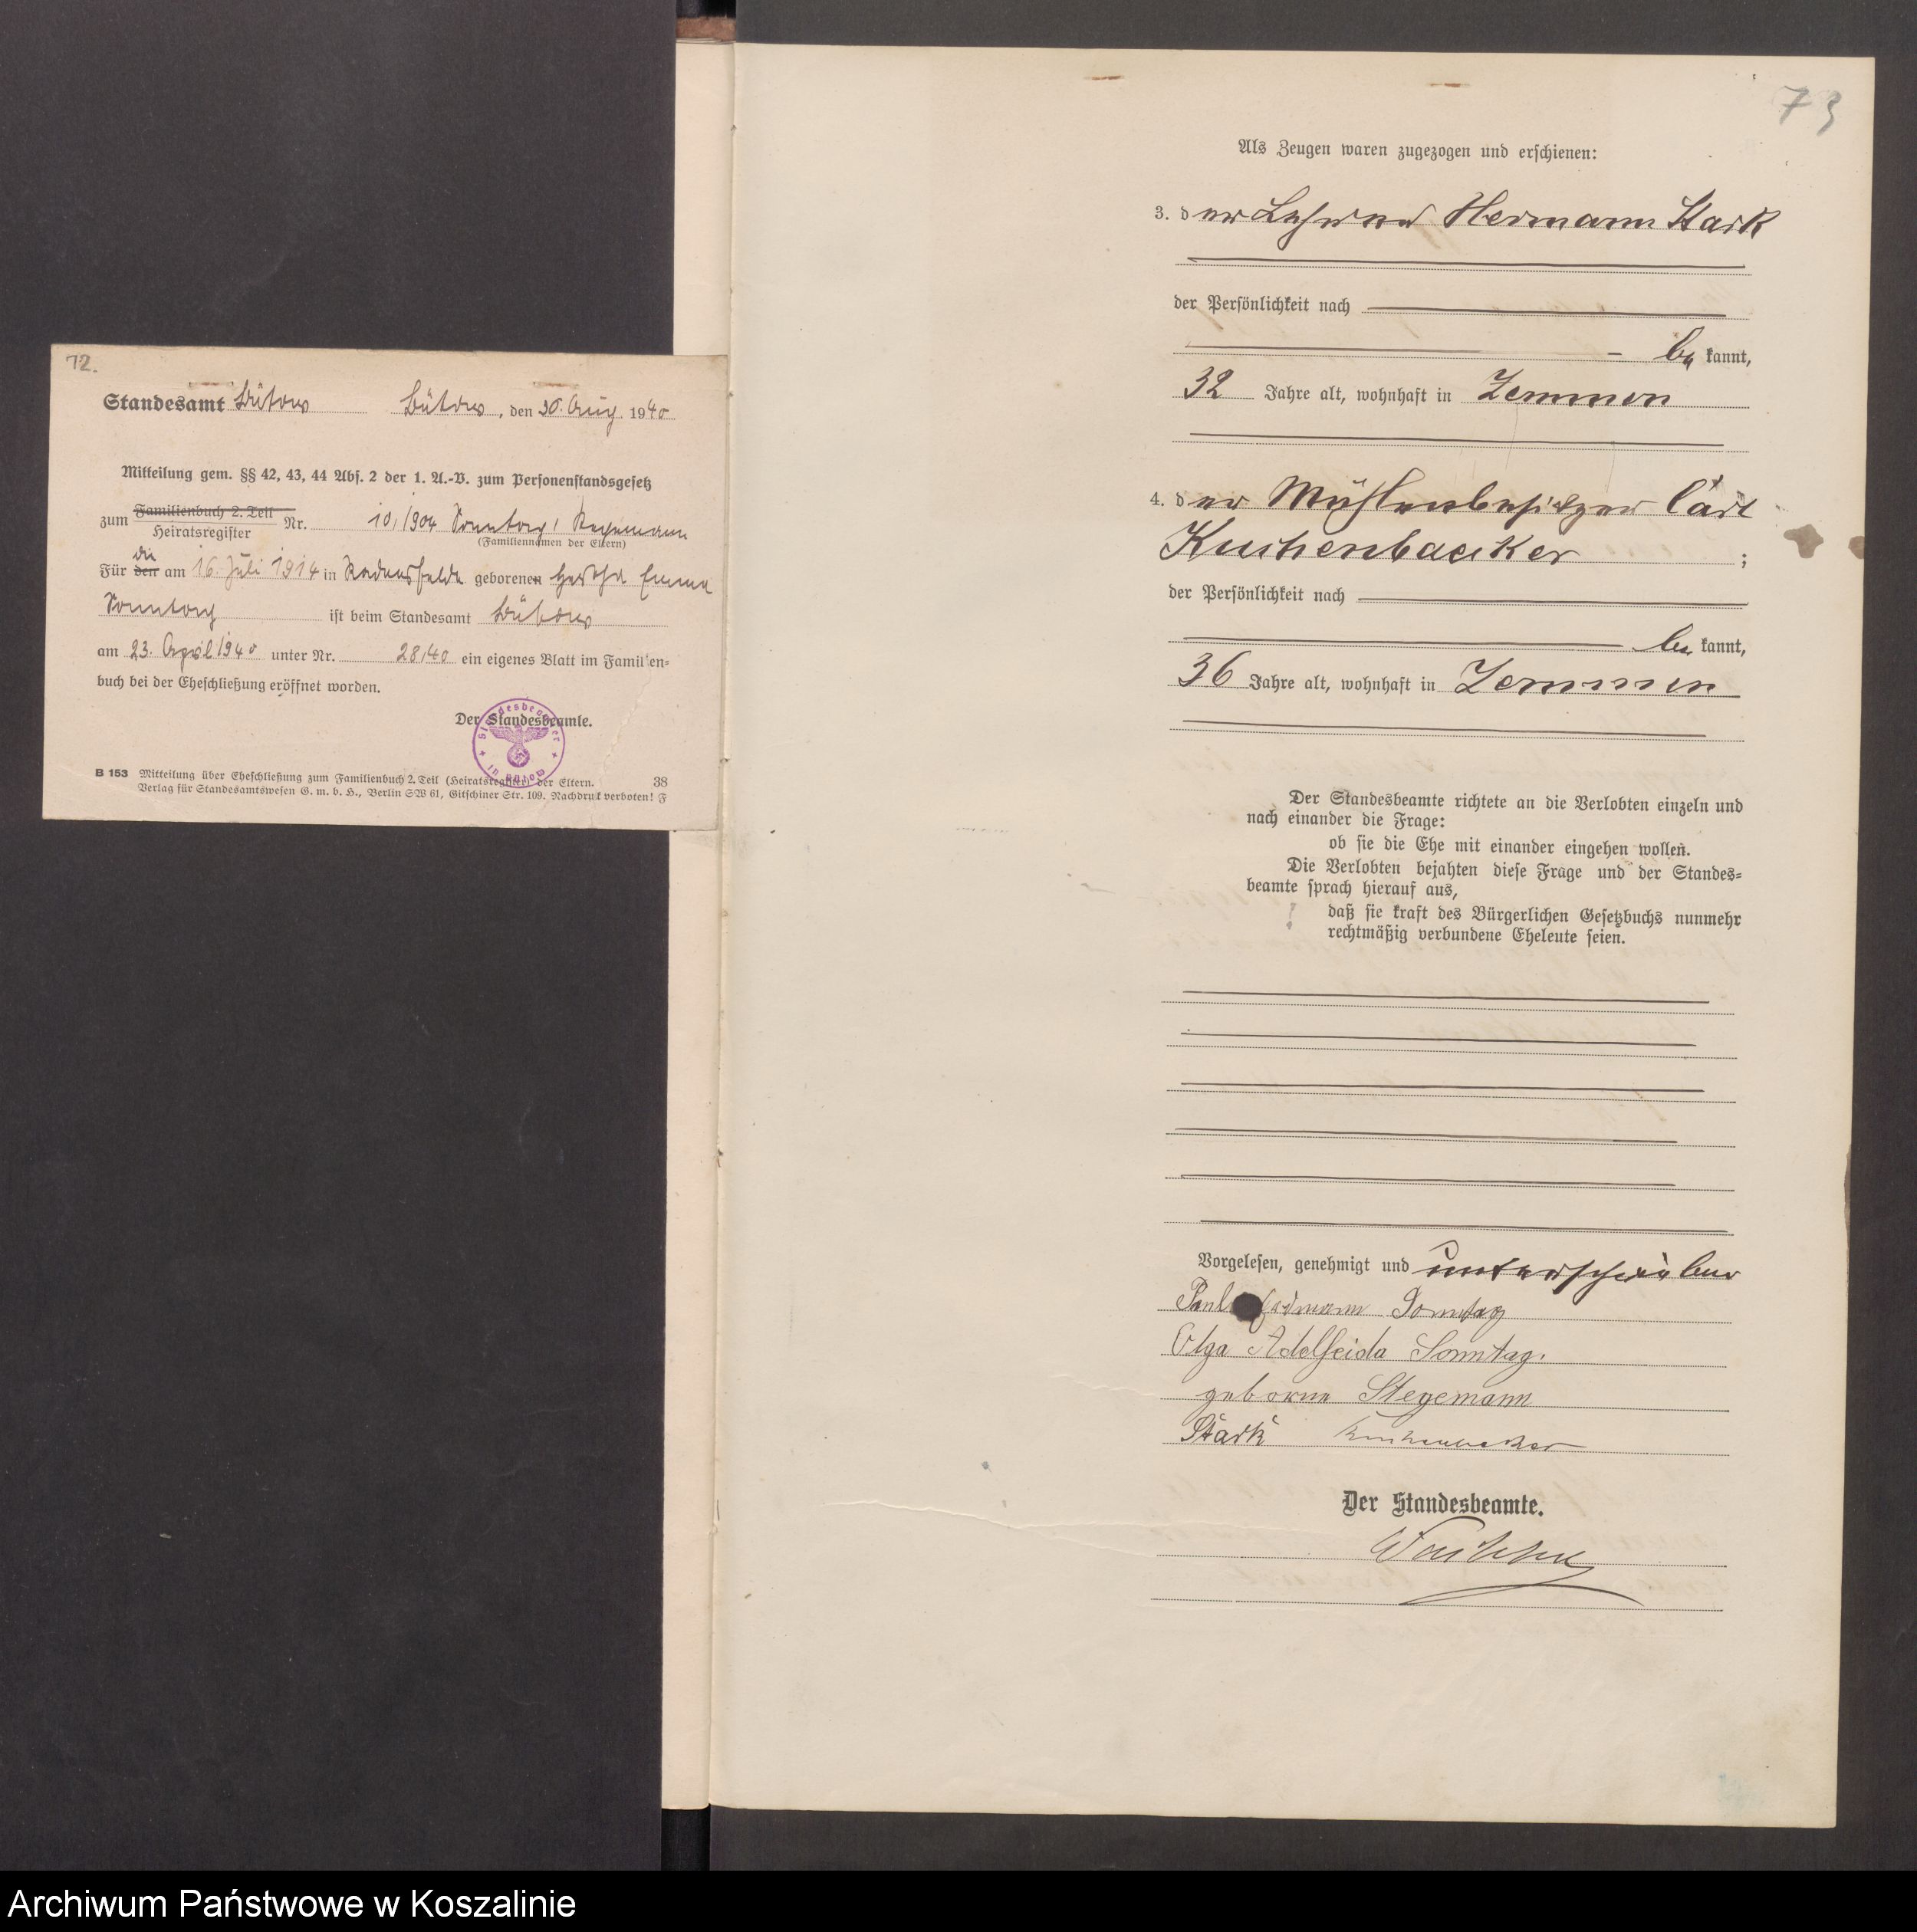 72.
Standesamt Bütow Bütow, den 30. Aug. 1940
Mitteilung gem. §§ 42, 43, 44 Abs. 2 der 1. A.-V. zum Personenstandsgesetz
zum Familienbuch 2. Teil
Heiratsregister Nr. 10/1904 Sonntag / Stegemann
(Familiennamen der Eltern)
die
Für den am 16. Juli 1914 in geborenen Hertha Emma
Sonntag ist beim Standesamt Bütow
am 23. April 1940 unter Nr. 28/40 ein eigenes Blatt im Familien-
buch bei der Eheschließung eröffnet worden.
Der Standesbeamte.
Standesbeamter in Bütow
B 153 Mitteilung über Eheschließung zum Familienbuch 2. Teil (Heiratsregister) der Eltern. 38
Verlag für Standesamtswesen G. m. b. H., Berlin SW 61, Gitschiner Str. 109. Nachdruck verboten! F
73
Als Zeugen waren zugezogen und erschienen:
3. der Lehrer Hermann Stark
der Persönlichkeit nach
bekannt,
32 Jahre alt, wohnhaft in Zemmen
4. der Mühlenbesitzer Carl
Kuchenbaecker ;
der Persönlichkeit nach
bekannt,
36 Jahre alt, wohnhaft in Zemmen
Der Standesbeamte richtete an die Verlobten einzeln und
nach einander die Frage:
ob sie die Ehe mit einander eingehen wollen.
Die Verlobten bejahten diese Frage und der Standes-
beamte sprach hierauf aus,
daß sie kraft des Bürgerlichen Gesetzbuchs nunmehr
rechtmäßig verbundene Eheleute seien.
Vorgelesen, genehmigt und unterschrieben
Paul Erdmann Sonntag
Olga Adelheida Sonntag.
geborne Stegemann
Stark Kuchenbecker
Der Standesbeamte.
Archiwum Państwowe w Koszalinie